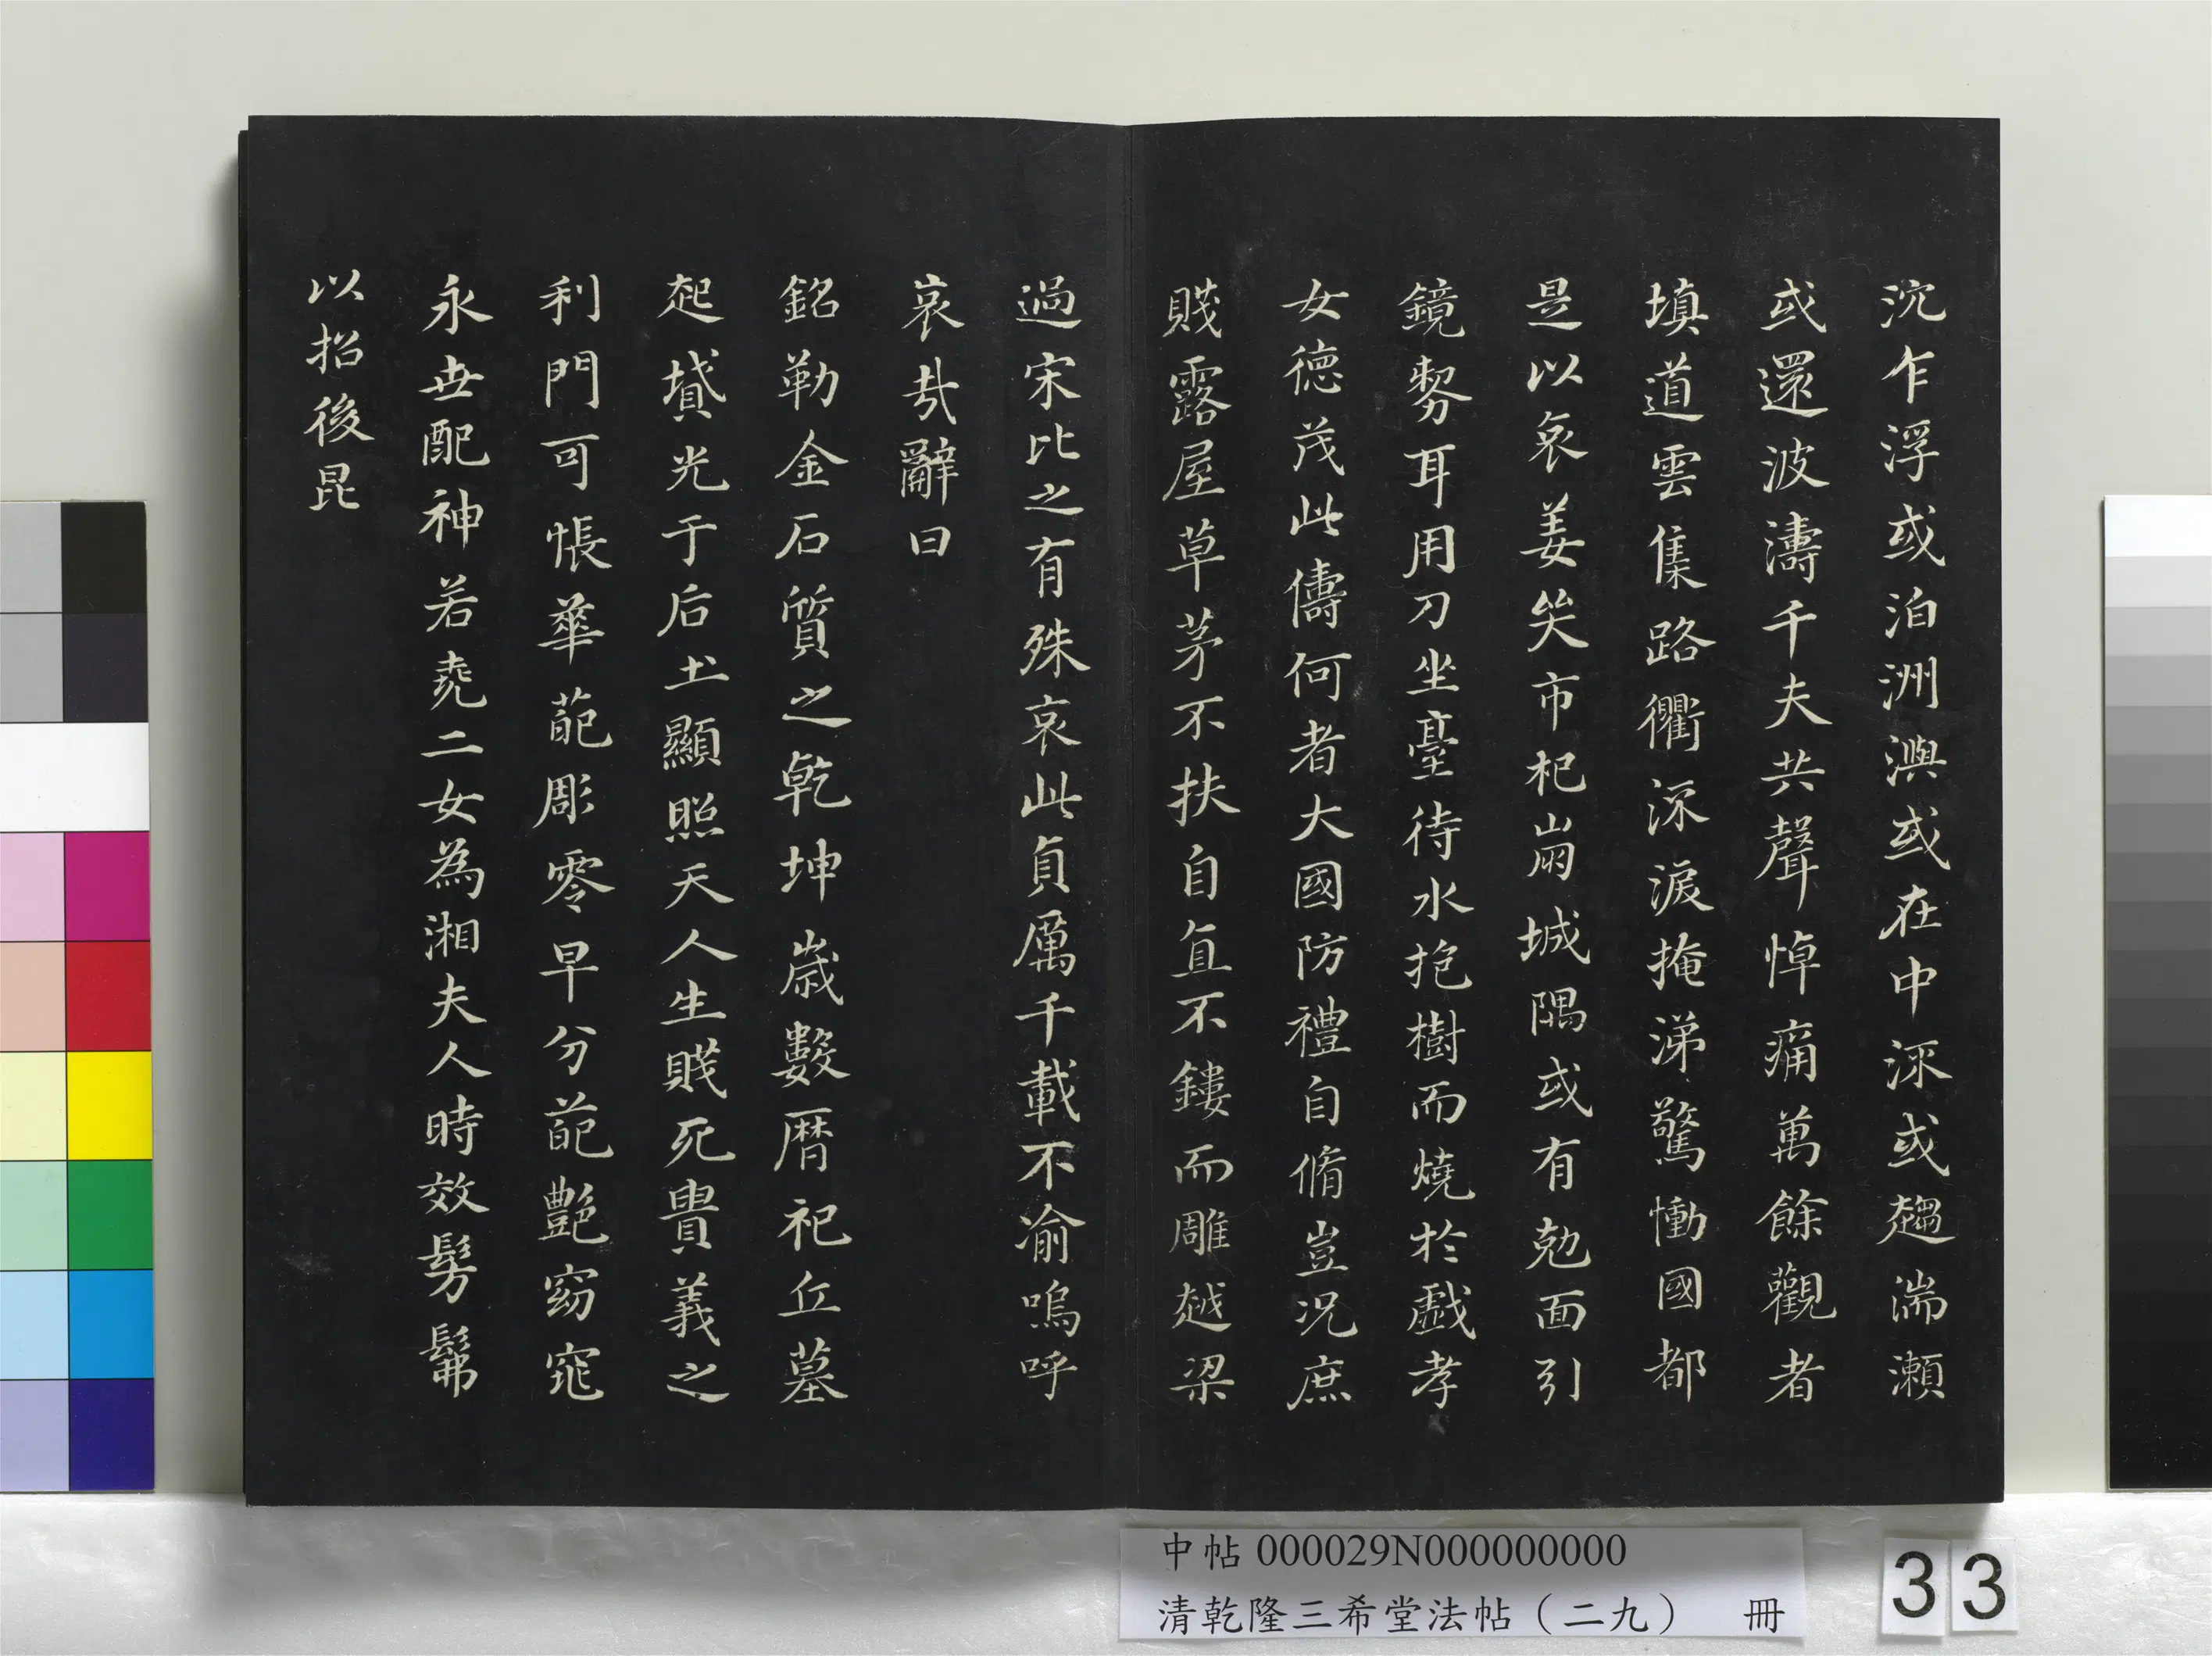 沉乍浮或泊洲澳或在中流或趨湍瀬
或還波濤千夫共聲悼痛萬餘觀者
填道雲集路衢流淚掩涕驚慟國都
是以哀姜哭市杞崩城隅或有勉面引
鏡剺耳用刀坐臺待水抱樹而燒於戲孝
女德茂此儔何者大國防禮自脩豈況庶
賤露屋草茅不扶自直不鏤而雕越梁
過宋比之有殊哀此貞厲千載不渝嗚呼
哀哉辭曰
銘勒金石質之乾坤歲數曆祀丘墓
起墳光于后土顯照天人生賤死貴義之
利門可悵華葩彫零早分葩艷窈窕
永世配神若堯二女為湘夫人時效髣髴
以招後昆
中帖 000029N000000000
清乾隆三希堂法帖（二九） 冊
33